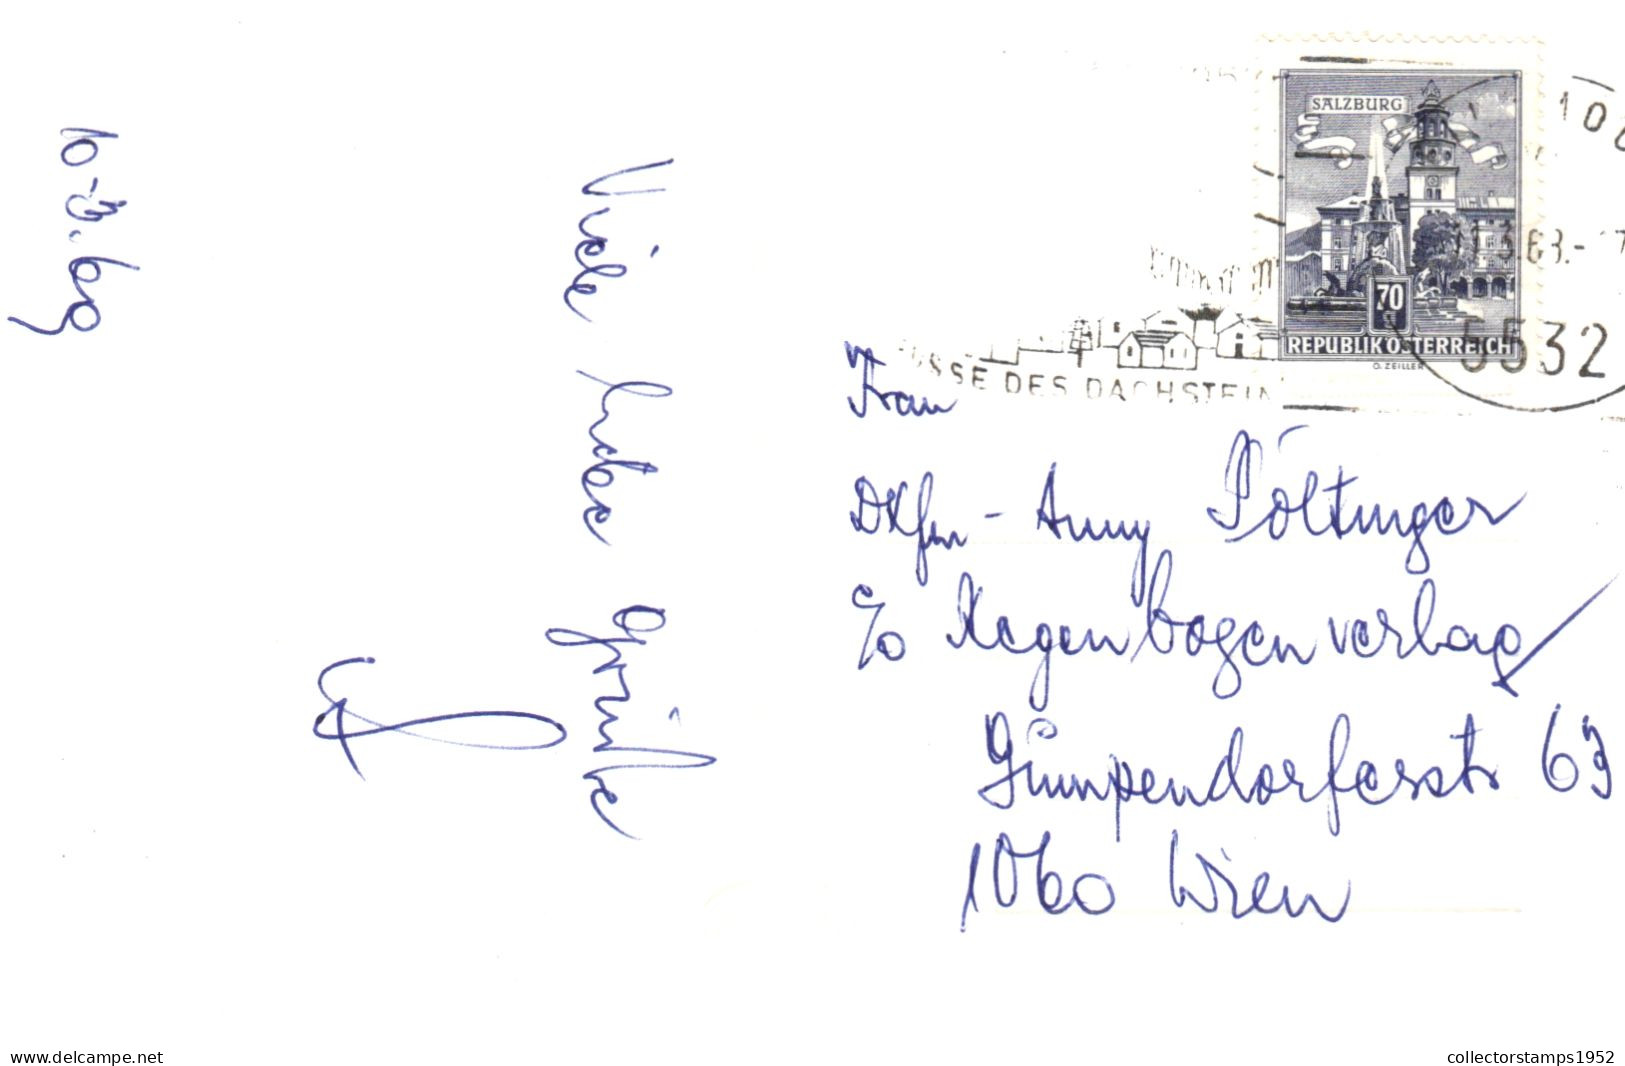 10-3.69
Viele liebe Grüße
SALZBURG
70
REPUBLIK ÖSTERREICH
O. ZEILLER
5532
DES DACHSTEIN
Frau
Dkfm - Anny Pöttinger
c/o Regenbogenverlag
Gumpendorferstr 63
1060 Wien
delcampe.net
collectorstamps1952